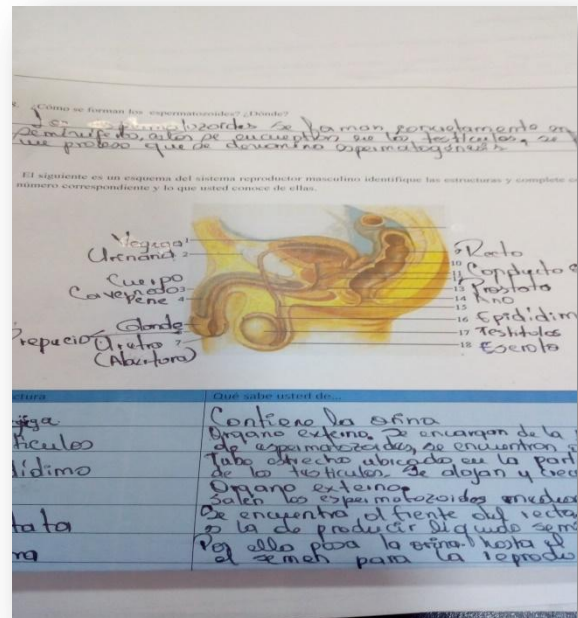 ¿Cómo se forman los espermatozoides? ¿Dónde?
se forman
seminífero, estos se encuentran en los testículos, se
un proceso que se denomina espermatogénesis
El siguiente es un esquema del sistema reproductor masculino identifique las estructuras y complete
número correspondiente y lo que usted conoce de ellas.
Vegiga 1
Urinaria 2
Cuerpo
Cavernoso 3
Pene 4
Glande
Prepucio
Uretra 7
(Abertura)
9 Recto
10
11 Conducto
13 Prostata
14 Ano
15
16 Epididim
17 Testiculos
18 Escroto
ctura Qué sabe usted de...
Contiene la orina
ticulos Organo externo. Se encargan de la
de espermatozoides, se encuentran
didimo Tubo estrecho ubicado en la part
de los testiculos. Se alojan y
Organo externo
Salen los espermatozoides
tata Se encuentra al frente del recto
es la de producir liquido sem
Por ello pasa la orina hasta el
el semen para la reprodu